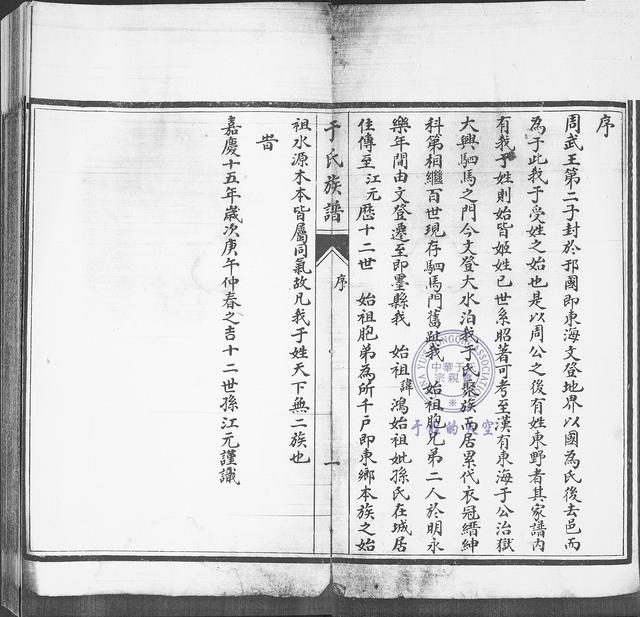 序
周武王第二子封於邘國即東海文登地界以國為氏後去邑而
為于此我于受姓之始也是以周公之後有姓東野者其家譜內
有我于姓則始皆姬姓已世系昭著可考至漢有東海于公治獄
大興駟馬之門今文登大水泊我于氏聚族而居累代衣冠縉紳
科第相繼百世現存駟馬門舊趾我 始祖胞兄弟二人於明永
樂年間由文登遷至即墨縣我 始祖諱鴻始祖妣孫氏在城居
住傳至江元歷十二世 始祖胞弟為所千戶即東鄉本族之始
于氏族譜 序 一
祖水源木本皆屬同氣故凡我于姓天下無二族也
旹
嘉慶十五年歲次庚午仲春之吉十二世孫江元謹識
中華于氏
宗親
ASSOCIATION
的天空